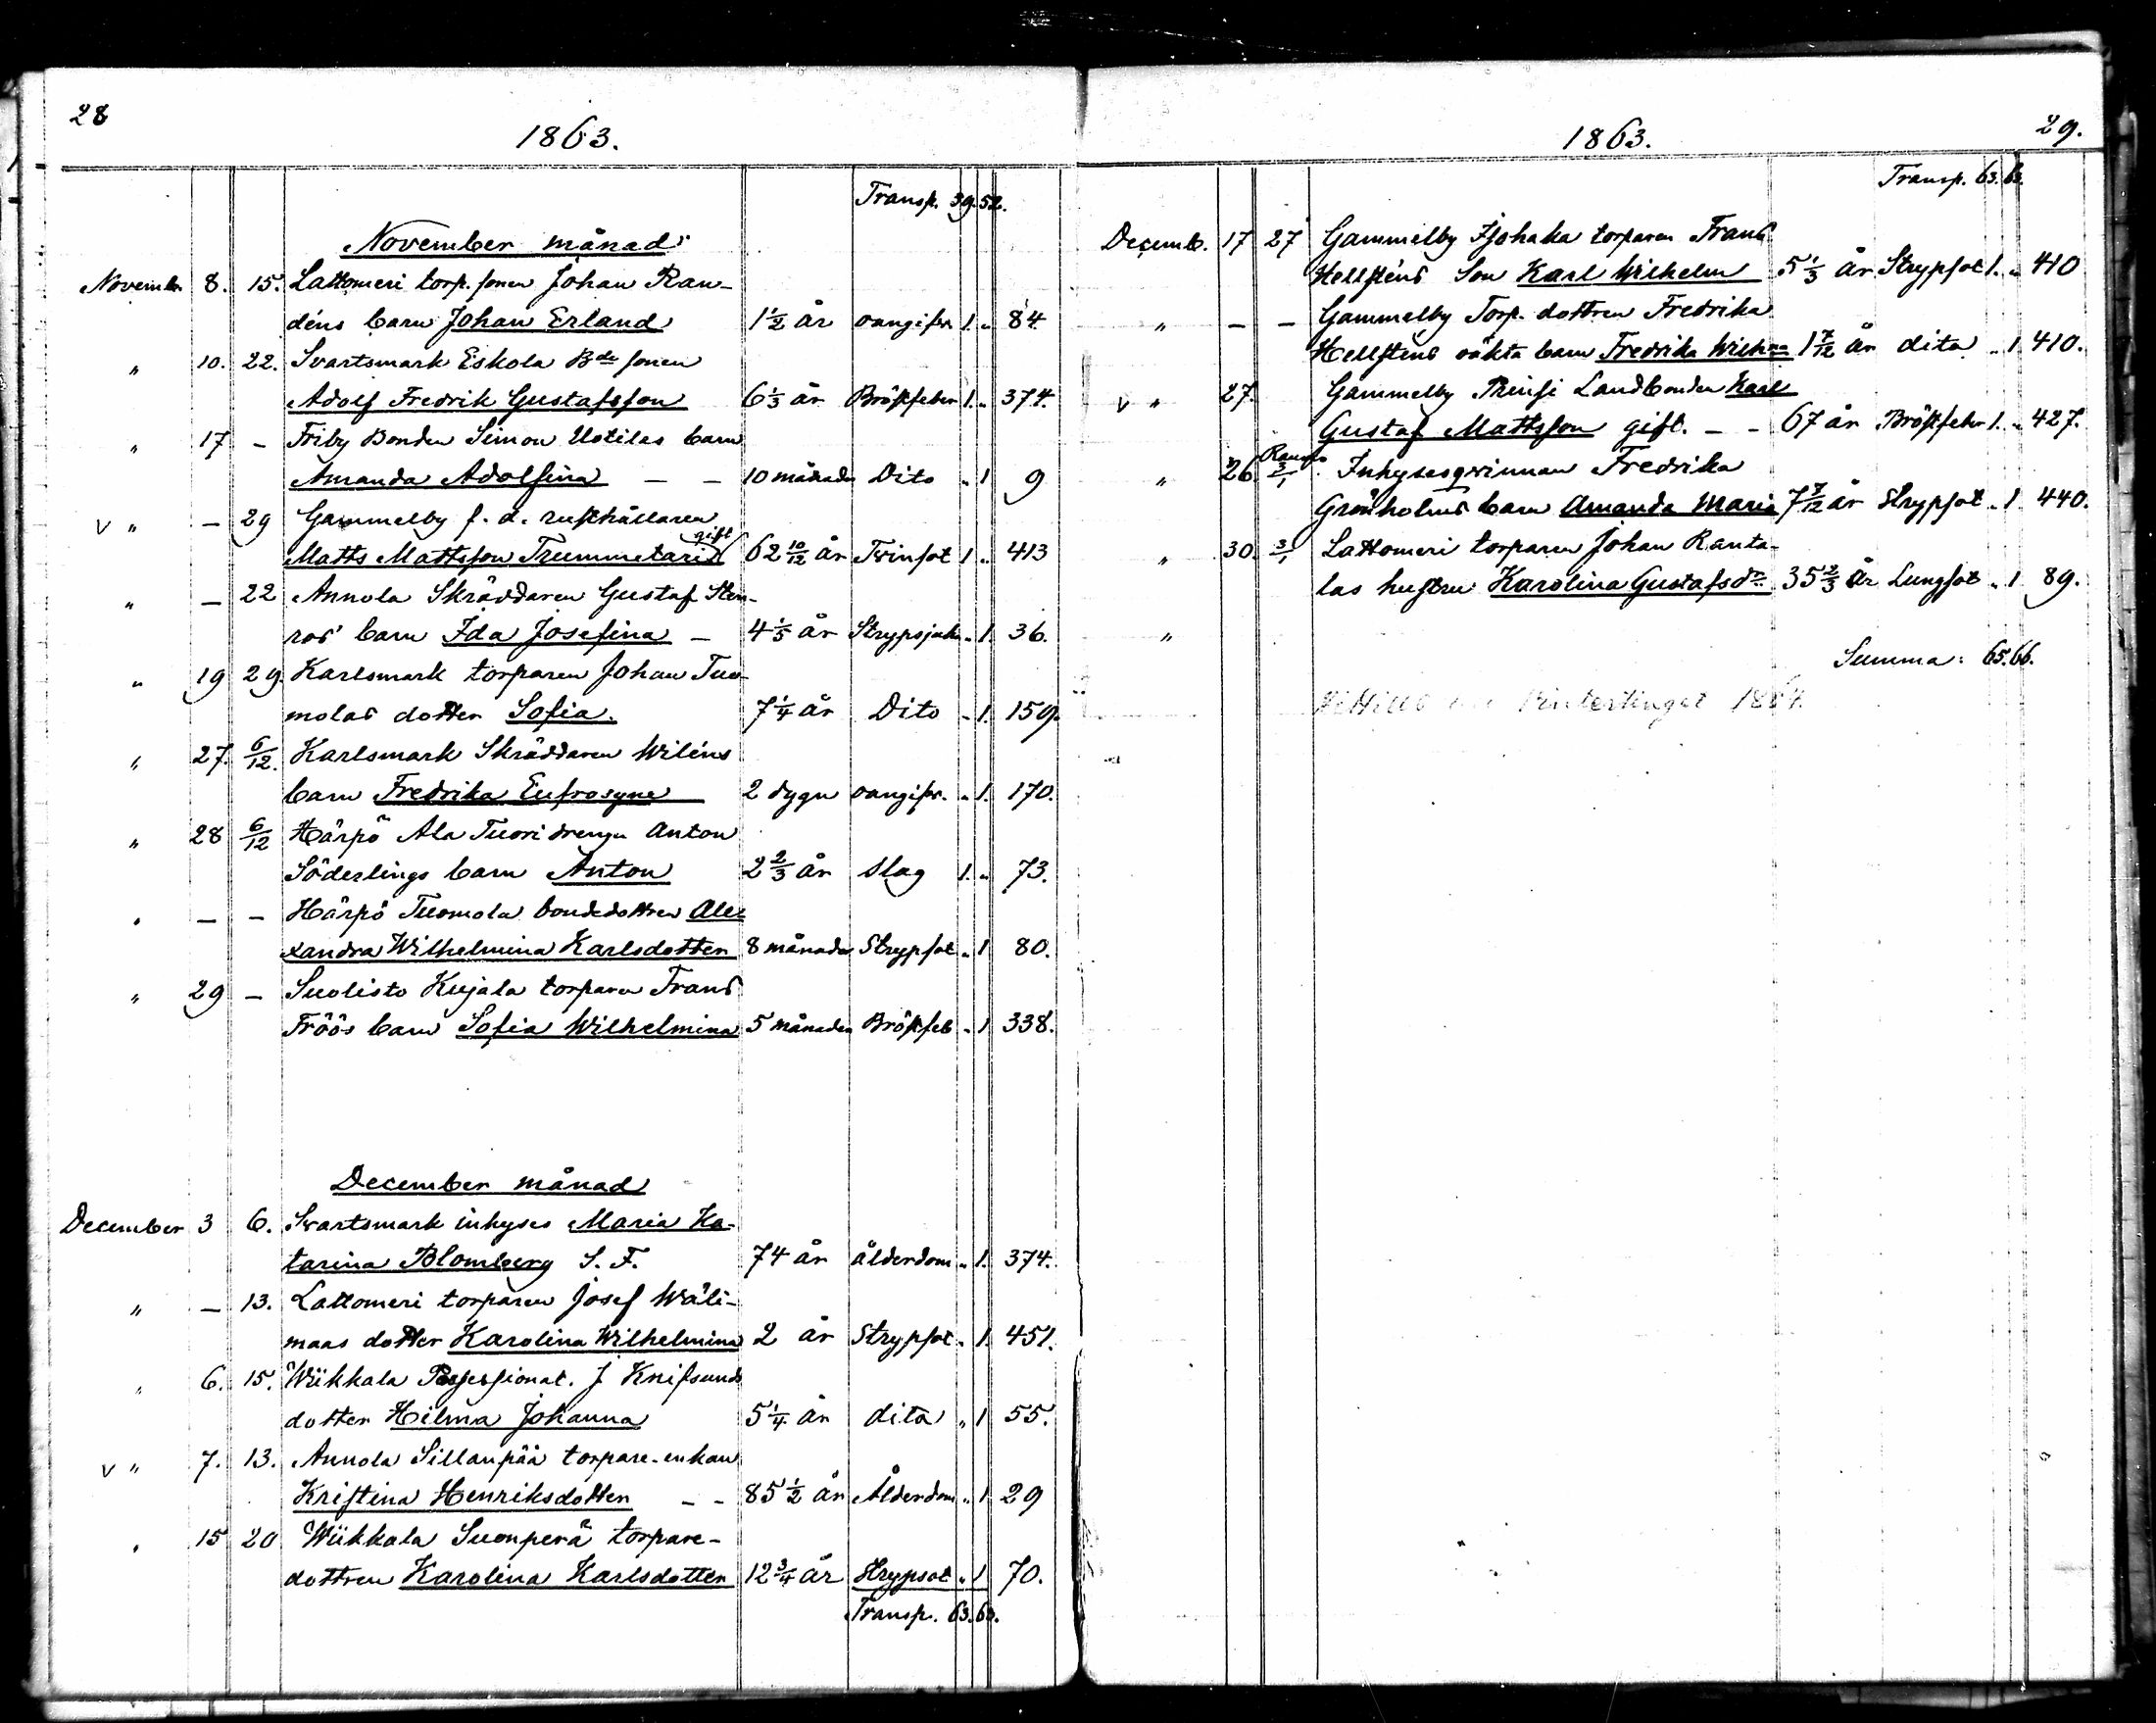 28
1863.
Transp. 39.52.
November månad
Novembr 8. 15. Lattomeri torp. sonen Johan Ran-
déns barn Johan Erland 1 1/2 år oangifv. 1 „ 84
„ 10. 22. Svartsmark Eskola Bde sonen
Adolf Fredrik Gustafsson 6 1/3 år Bröstfeber 1. „ 374.
„ 17 – Friby Bonden Simon Uotilas barn
Amanda Adolfina – – 10 månader Dito „ 1 9
v „ – 29 Gammelby f. d. rusthållaren
Matts Mattsson Trummetari gift 62 10/12 år Tvinsot 1 „ 413
„ – 22 Annola Skräddaren Gustaf Sten-
ros' barn Ida Josefina – 4 1/5 år Strypsjuka „ 1. 36.
„ 19 29. Karlsmark torparen Johan Tuo-
molas dotter Sofia. 7 1/4 år Dito „ 1. 159.
„ 27. 6/12. Karlsmark Skräddaren Wiléns
barn Fredrika Eufrosyne 2 dygn oangifv. „ 1. 170.
„ 28 6/12 Härpö Ala Tuori drengen Anton
Söderlings barn Anton 2 2/3 år Slag 1. „ 73.
„ – – Härpö Tuomola bondedottren Ale
xandra Wilhelmina Karlsdotter 8 månader Strypsot „ 1 80.
„ 29 – Suolisto Kujala torparen Frans
Fröös barn Sofia Wilhelmina 5 månader Bröstfeb „ 1 338.
December månad
December 3 6. Svartsmark inhyses Maria Ka-
tarina Blomberg S. F. 74 år ålderdom „ 1. 374.
„ – 13. Lattomeri torparen Josef Wäli-
maas dotter Karolina Wilhelmina 2 år Strypsot „ 1. 451.
„ 6. 15. Wiikkala Possessionat. J Knifsunds
dotter Hilma Johanna 5 1/4 år dito „ 1 55.
v „ 7. 13. Annola Sillanpää torpare-enkan
Kristina Henriksdotter – – 85 1/2 år Ålderdom „ 1 29
„ 15 20 Wiikkala Suonperä torpare-
dottren Karolina Karlsdotter 12 3/4 år Strypsot „ 1 70.
Transp. 63.63.
29.
1863.
Transp. 63.63.
Decemb. 17 27 Gammelby torparen Frans
Hellsténs Son Karl Wilhelm 5 1/3 år Strypsot 1. „ 410
„ – – Gammelby Torp. dottren Fredrika
Hellstens oäkta barn Fredrika Wilhna 1 7/12 år dito „ 1 410.
v „ 27. Gammelby Prinsi Landbonden Karl
Gustaf Mattsson gift. – – 67 år Bröstfebr 1. „ 427.
„ 26 3/1 Inhysesqvinnan Fredrika
Grönholms barn Amanda Maria 7 7/12 år Strypsot „ 1 440.
„ 30. 3/1 Lattomeri torparen Johan Ranta-
las hustru Karolina Gustafsdr 35 2/3 år Lungsot „ 1 89.
„
Summa: 65.66.
Vintertinget 1864.